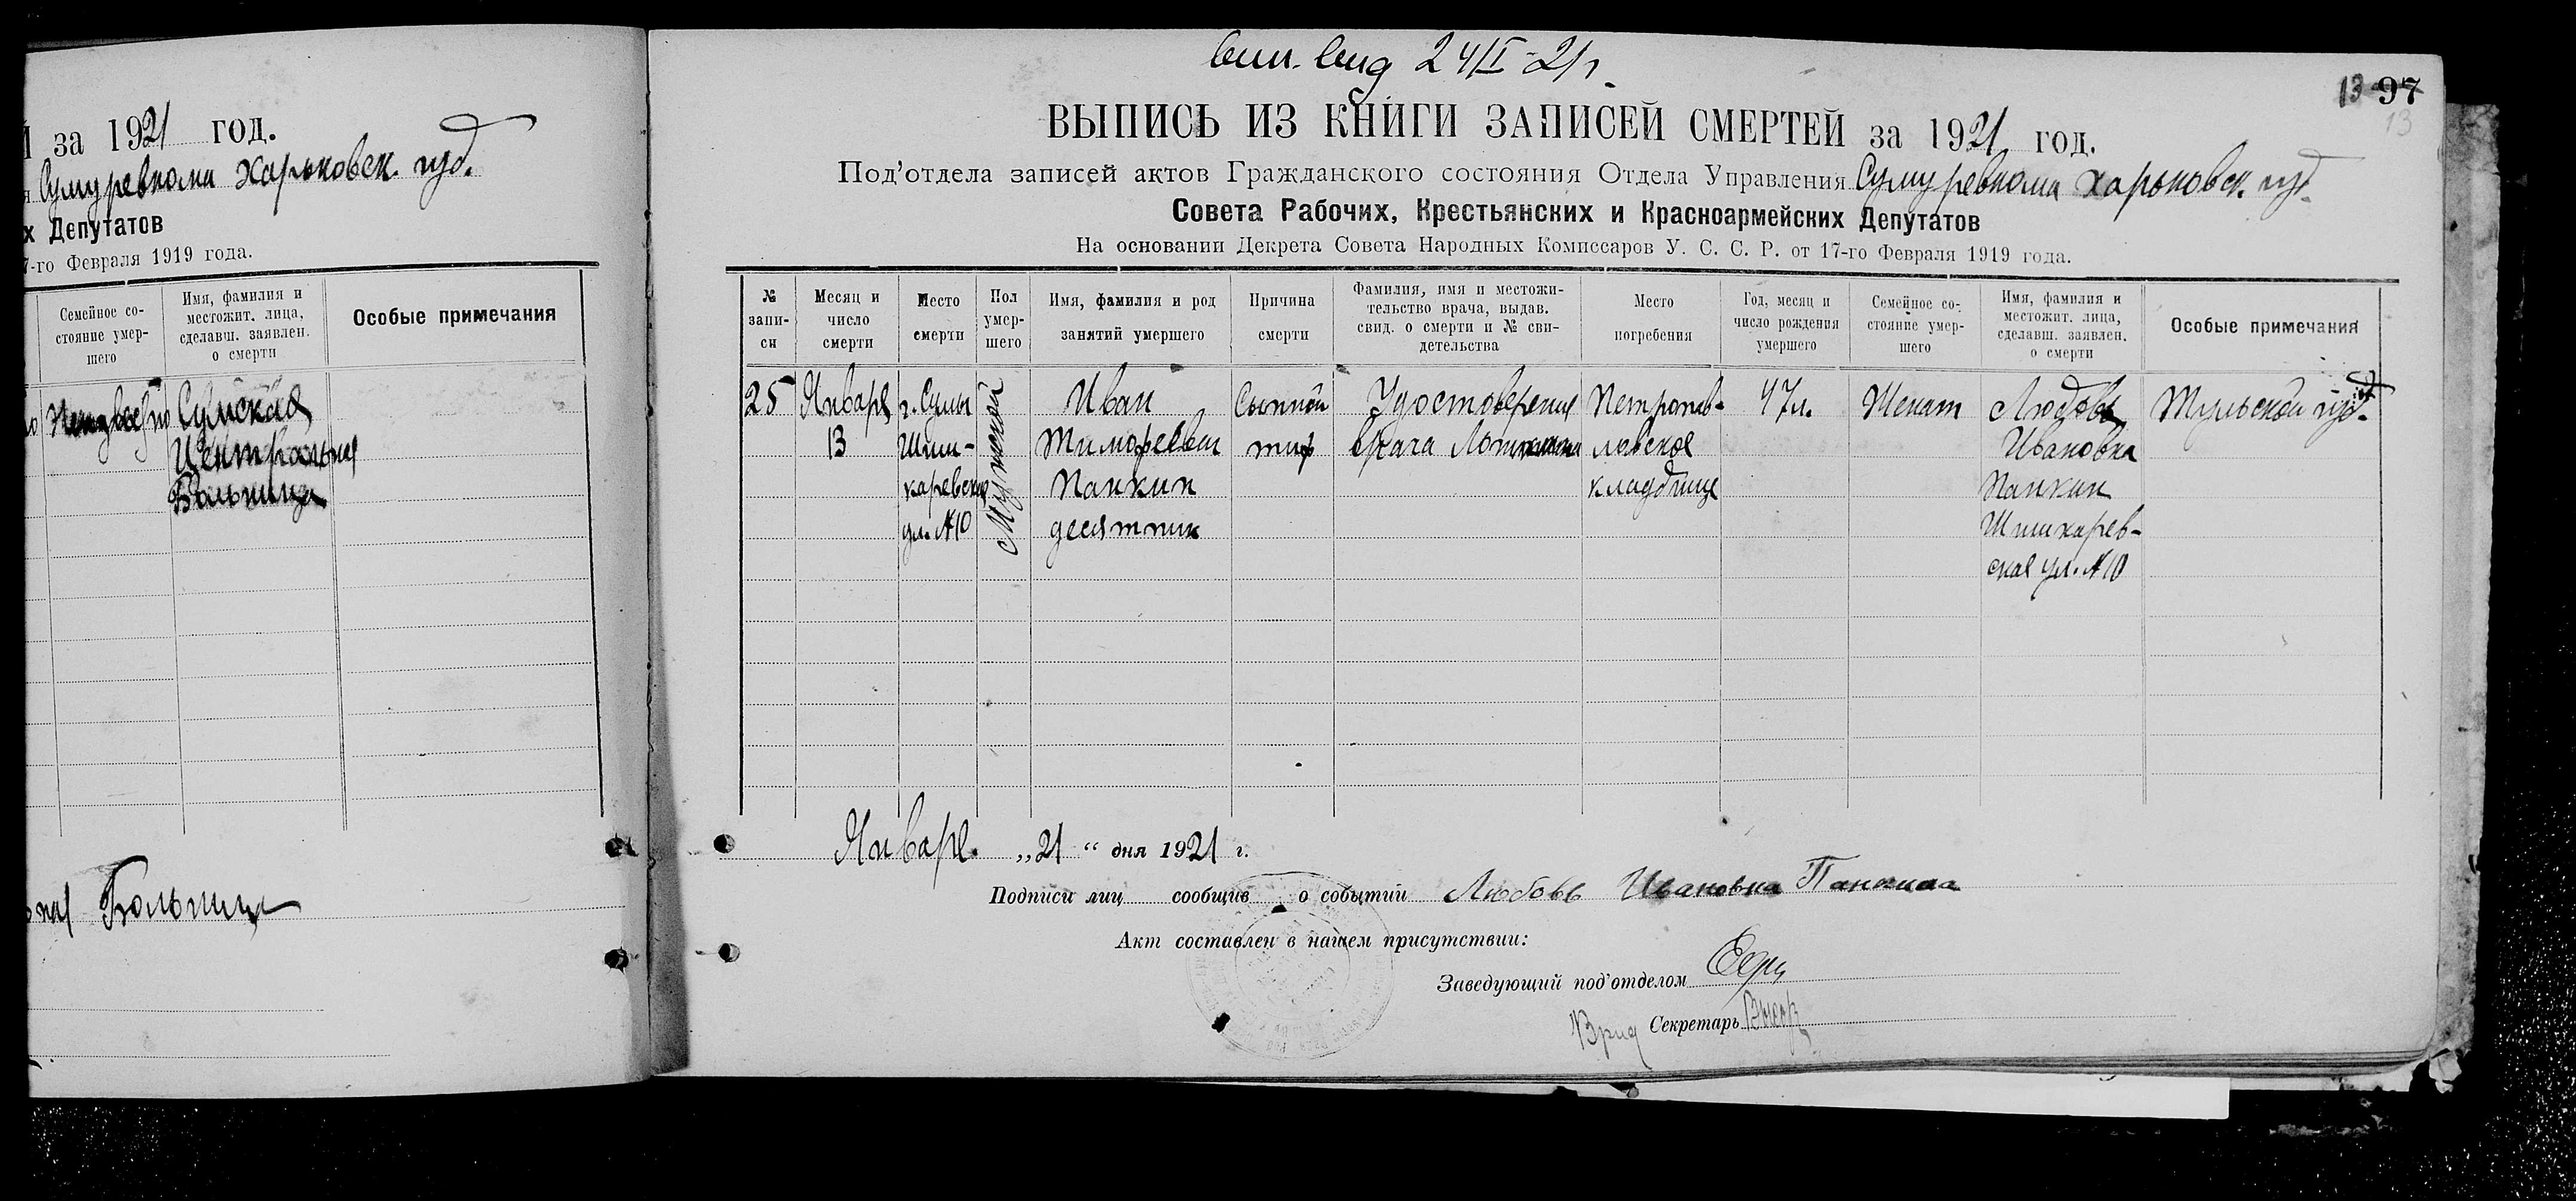 й за 1921 год.
я Сумуревкома Харьковск. губ.
х Депутатов
7-го Февраля 1919 года.
Семейное со-
стояние умер-
шего
Имя, фамилия и
местожит. лица,
сделавш. заявлен.
о смерти
Особые примечания
Сумская
Центральная
Больница
Больница
вид 24/I-21г.
13 97
13
ВЫПИСЬ ИЗ КНИГИ ЗАПИСЕЙ СМЕРТЕЙ за 1921 год.
Под'отдела записей актов Гражданского состояния Отдела Управления Сумуревкома Харьковск. губ.
Совета Рабочих, Крестьянских и Красноармейских Депутатов
На основании Декрета Совета Народных Комиссаров У. С. С. Р. от 17-го Февраля 1919 года.
№
запи-
си
Месяц и
число
смерти
Место
смерти
Пол
умер-
шего
Имя, фамилия и род
занятий умершего
Причина
смерти
Фамилия, имя и местожи-
тельство врача, выдав.
свид. о смерти и № сви-
детельства
Место
погребения
Год, месяц и
число рождения
умершего
Семейное со-
стояние умер-
шего
Имя, фамилия и
местожит. лица,
сделавш. заявлен.
о смерти
Особые примечания
25
Января
13
г. Сумы
Шиш-
каревская
ул. №10
Мужской
Иван
Тимофеевич
Панкин
десятник
Сыпной
тиф
Удостоверение
врача
Петропав-
ловское
кладбище
47л.
Женат
Любовь
Ивановна
Панкин
Шишкарев-
ская ул. №10
Тульской губ.
Января. „21“ дня 1921 г.
Подписи лиц сообщив о событии Любовь Ивановна Панкина
Акт составлен в нашем присутствии:
Заведующий под'отделом
Врид Секретарь